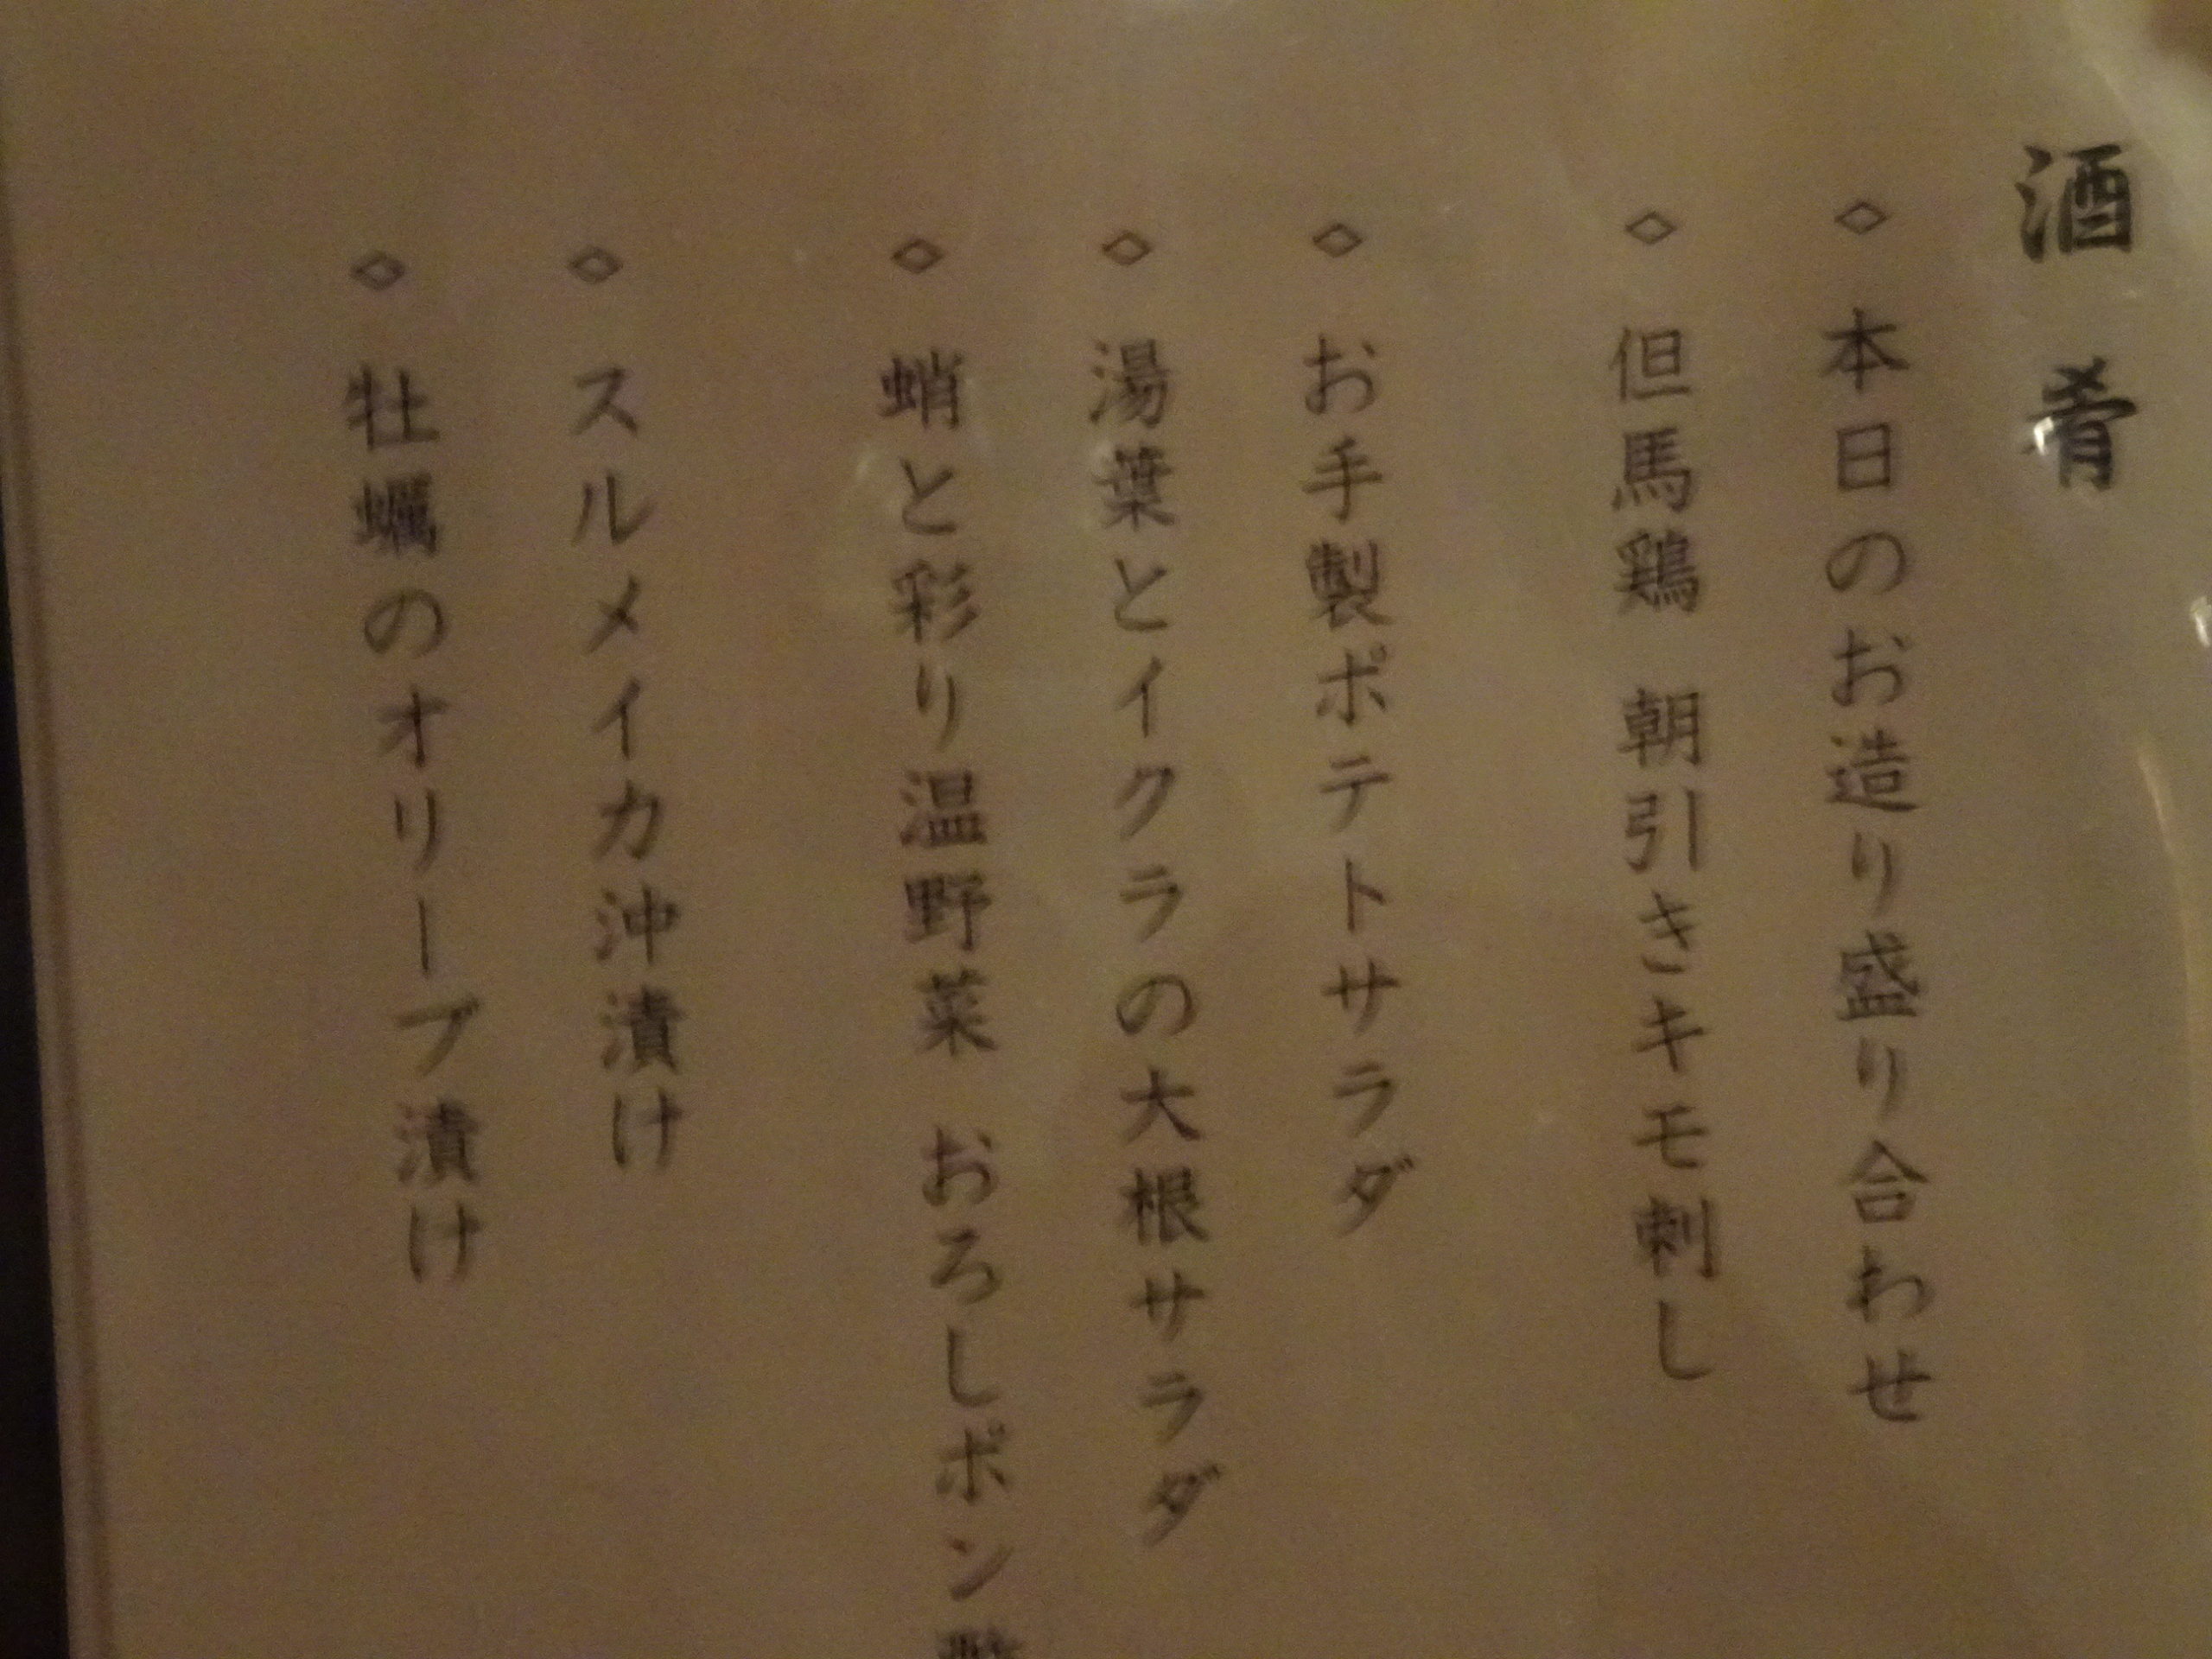 酒肴
◇ 本日のお造り盛り合わせ
◇ 但馬鶏 朝引きキモ刺し
◇ お手製ポテトサラダ
◇ 湯葉とイクラの大根サラダ
◇ 蛸と彩り温野菜 おろしポン
◇ スルメイカ沖漬け
◇ 牡蠣のオリーブ漬け